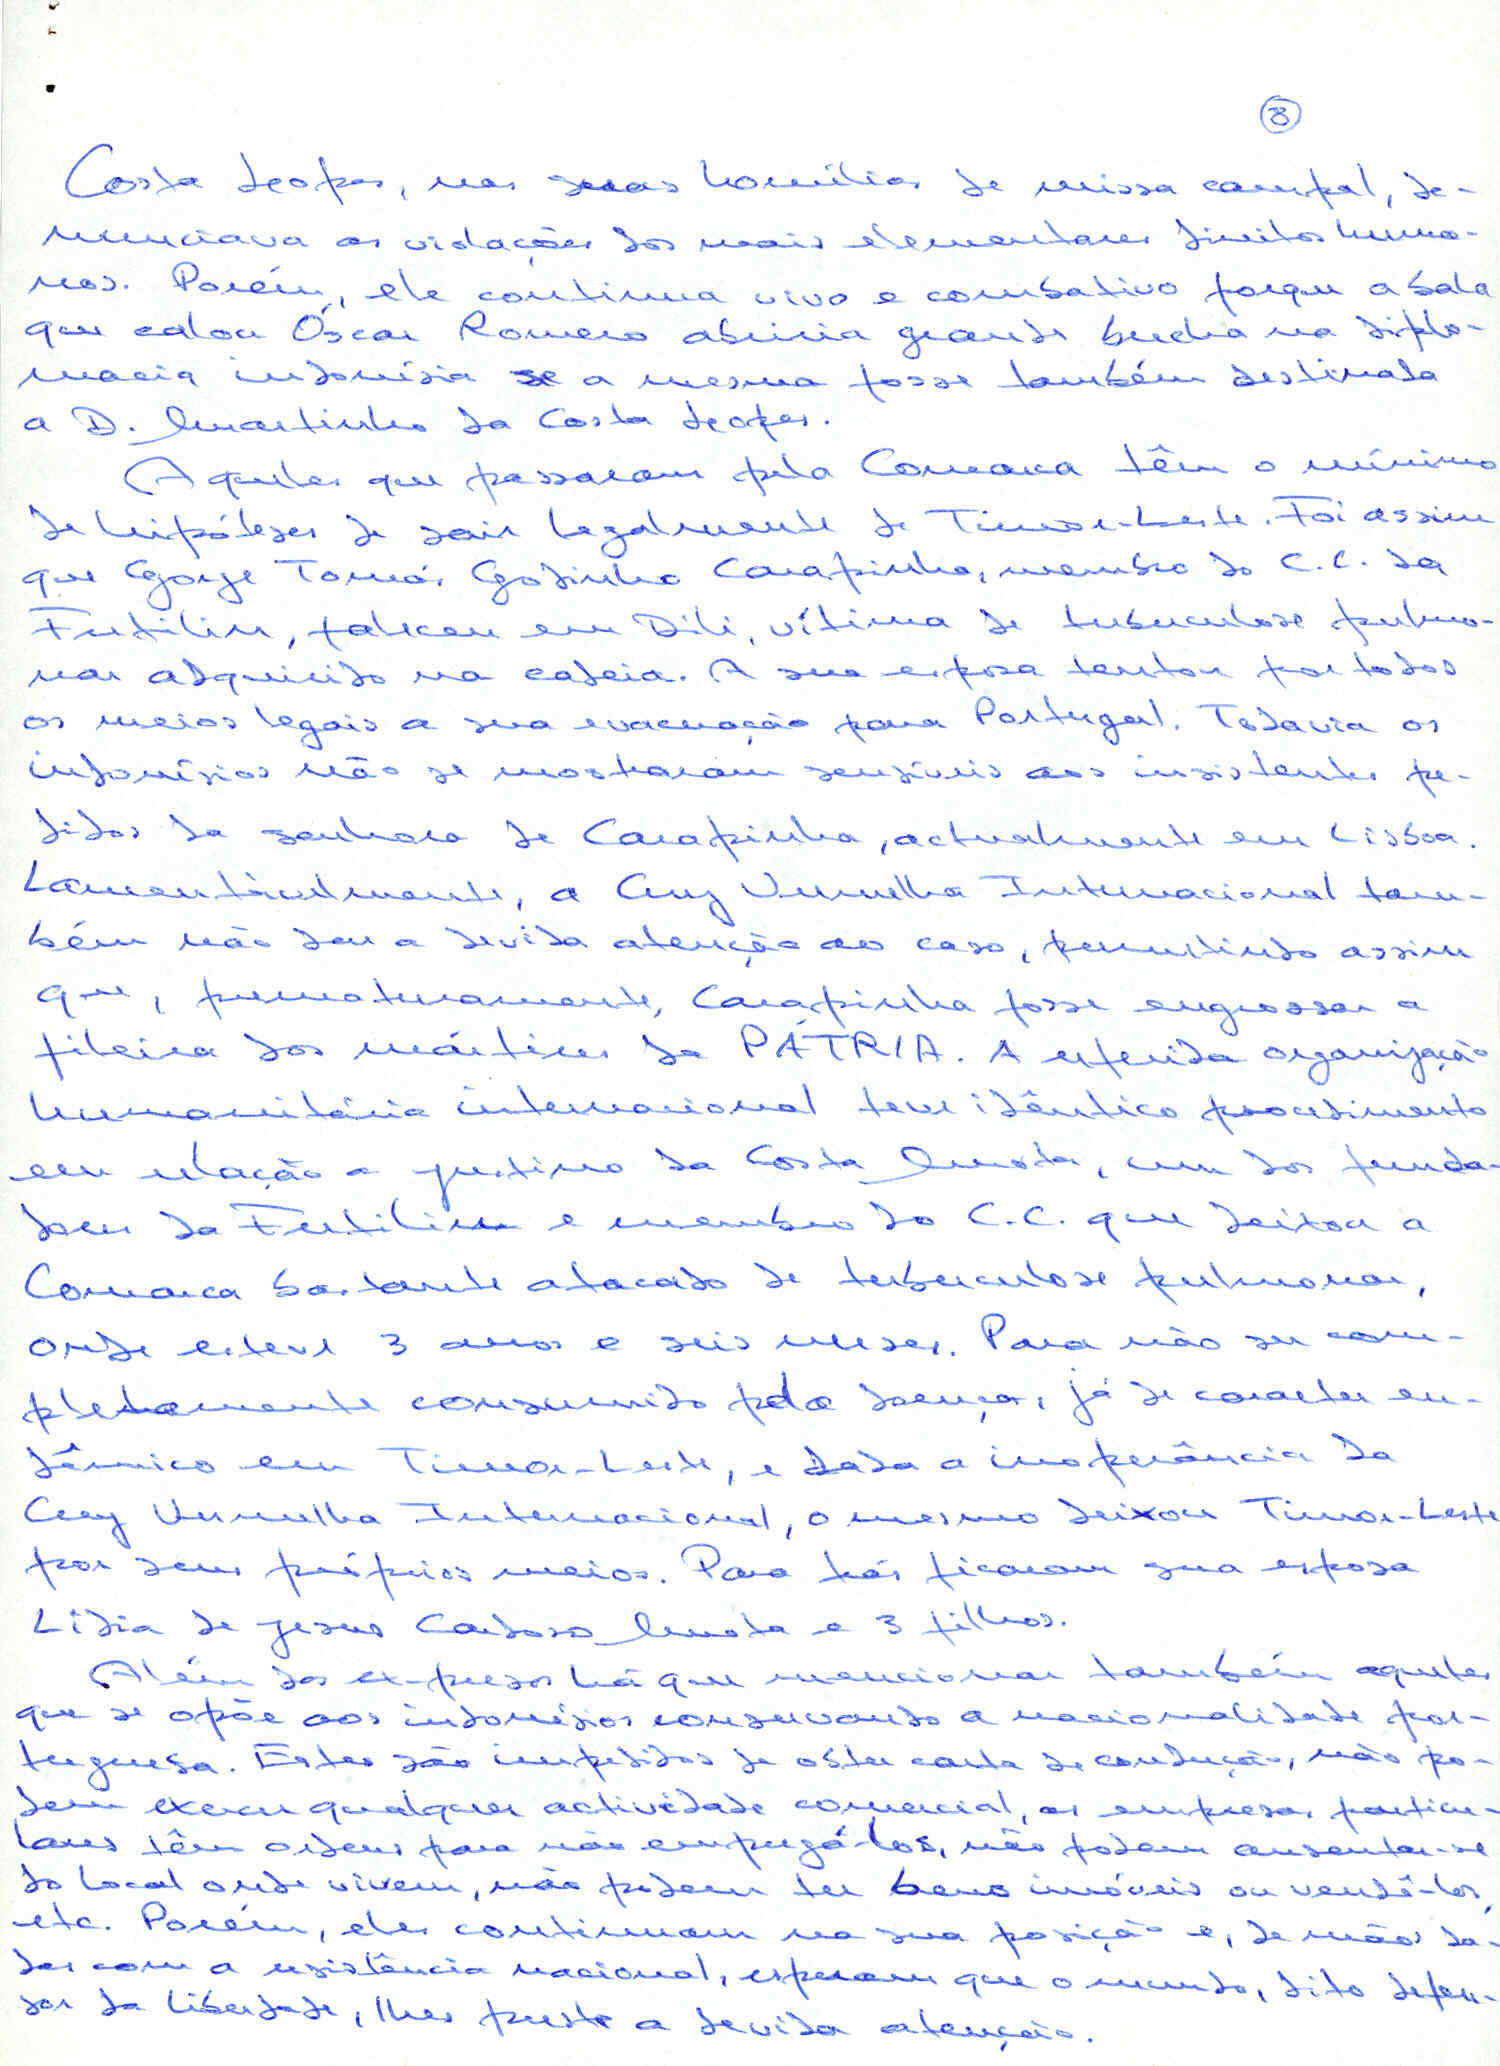 8
Costa Lopes, nas suas homilias de missa campal, de-
nunciava as violações dos mais elementares direitos huma-
nos. Porém, ele continua vivo e combativo porque a bala
que calou Óscar Romero abriria grande brecha na diplo-
macia indonésia se a mesma fosse também destinada
a D. Martinho da Costa Lopes.
Aqueles que passaram pela Comarca têm o mínimo
de hipóteses de sair legalmente de Timor-Leste. Foi assim
que George Tomás Godinho Carapinha, membro do C.C. da
Fretilin, faleceu em Dili, vítima de tuberculose pulmo-
nar adquirida na cadeia. A sua esposa tentou por todos
os meios legais a sua evacuação para Portugal. Todavia os
indonésios não se mostraram sensíveis aos insistentes pe-
didos da senhora de Carapinha, actualmente em Lisboa.
Lamentávelmente, a Cruz Vermelha Internacional tam-
bém não deu a devida atenção ao caso, permitindo assim
que, prematuramente, Carapinha fosse engrossar a
fileira dos mártires da PÁTRIA. A referida organização
humanitária internacional teve idêntico procedimento
em relação a Justino da Costa Mota, um dos funda-
dores da Fretilin e membro do C.C. que deixou a
Comarca bastante atacado de tuberculose pulmonar,
onde esteve 3 anos e seis meses. Para não ser com-
pletamente consumido pela doença, já de caracter en-
démico em Timor-Leste, e dada a inoperância da
Cruz Vermelha Internacional, o mesmo deixou Timor-Leste
por seus próprios meios. Para trás ficaram sua esposa
Lídia de Jesus Cardoso Mota e 3 filhos.
Além dos ex-presos há que mencionar também aqueles
que se opõe aos indonésios conservando a nacionalidade por-
tuguesa. Estes são impedidos de obter carta de condução, não po-
dem exercer qualquer actividade comercial, as empresas particu-
lares têm ordens para não empregá-los, não podem ausentar-se
do local onde vivem, não podem ter bens imóveis ou vendê-los,
etc. Porém, eles continuam na sua posição e, de mãos da-
das com a resistência nacional, esperam que o mundo, dito defen-
sor da liberdade, lhes preste a devida atenção.